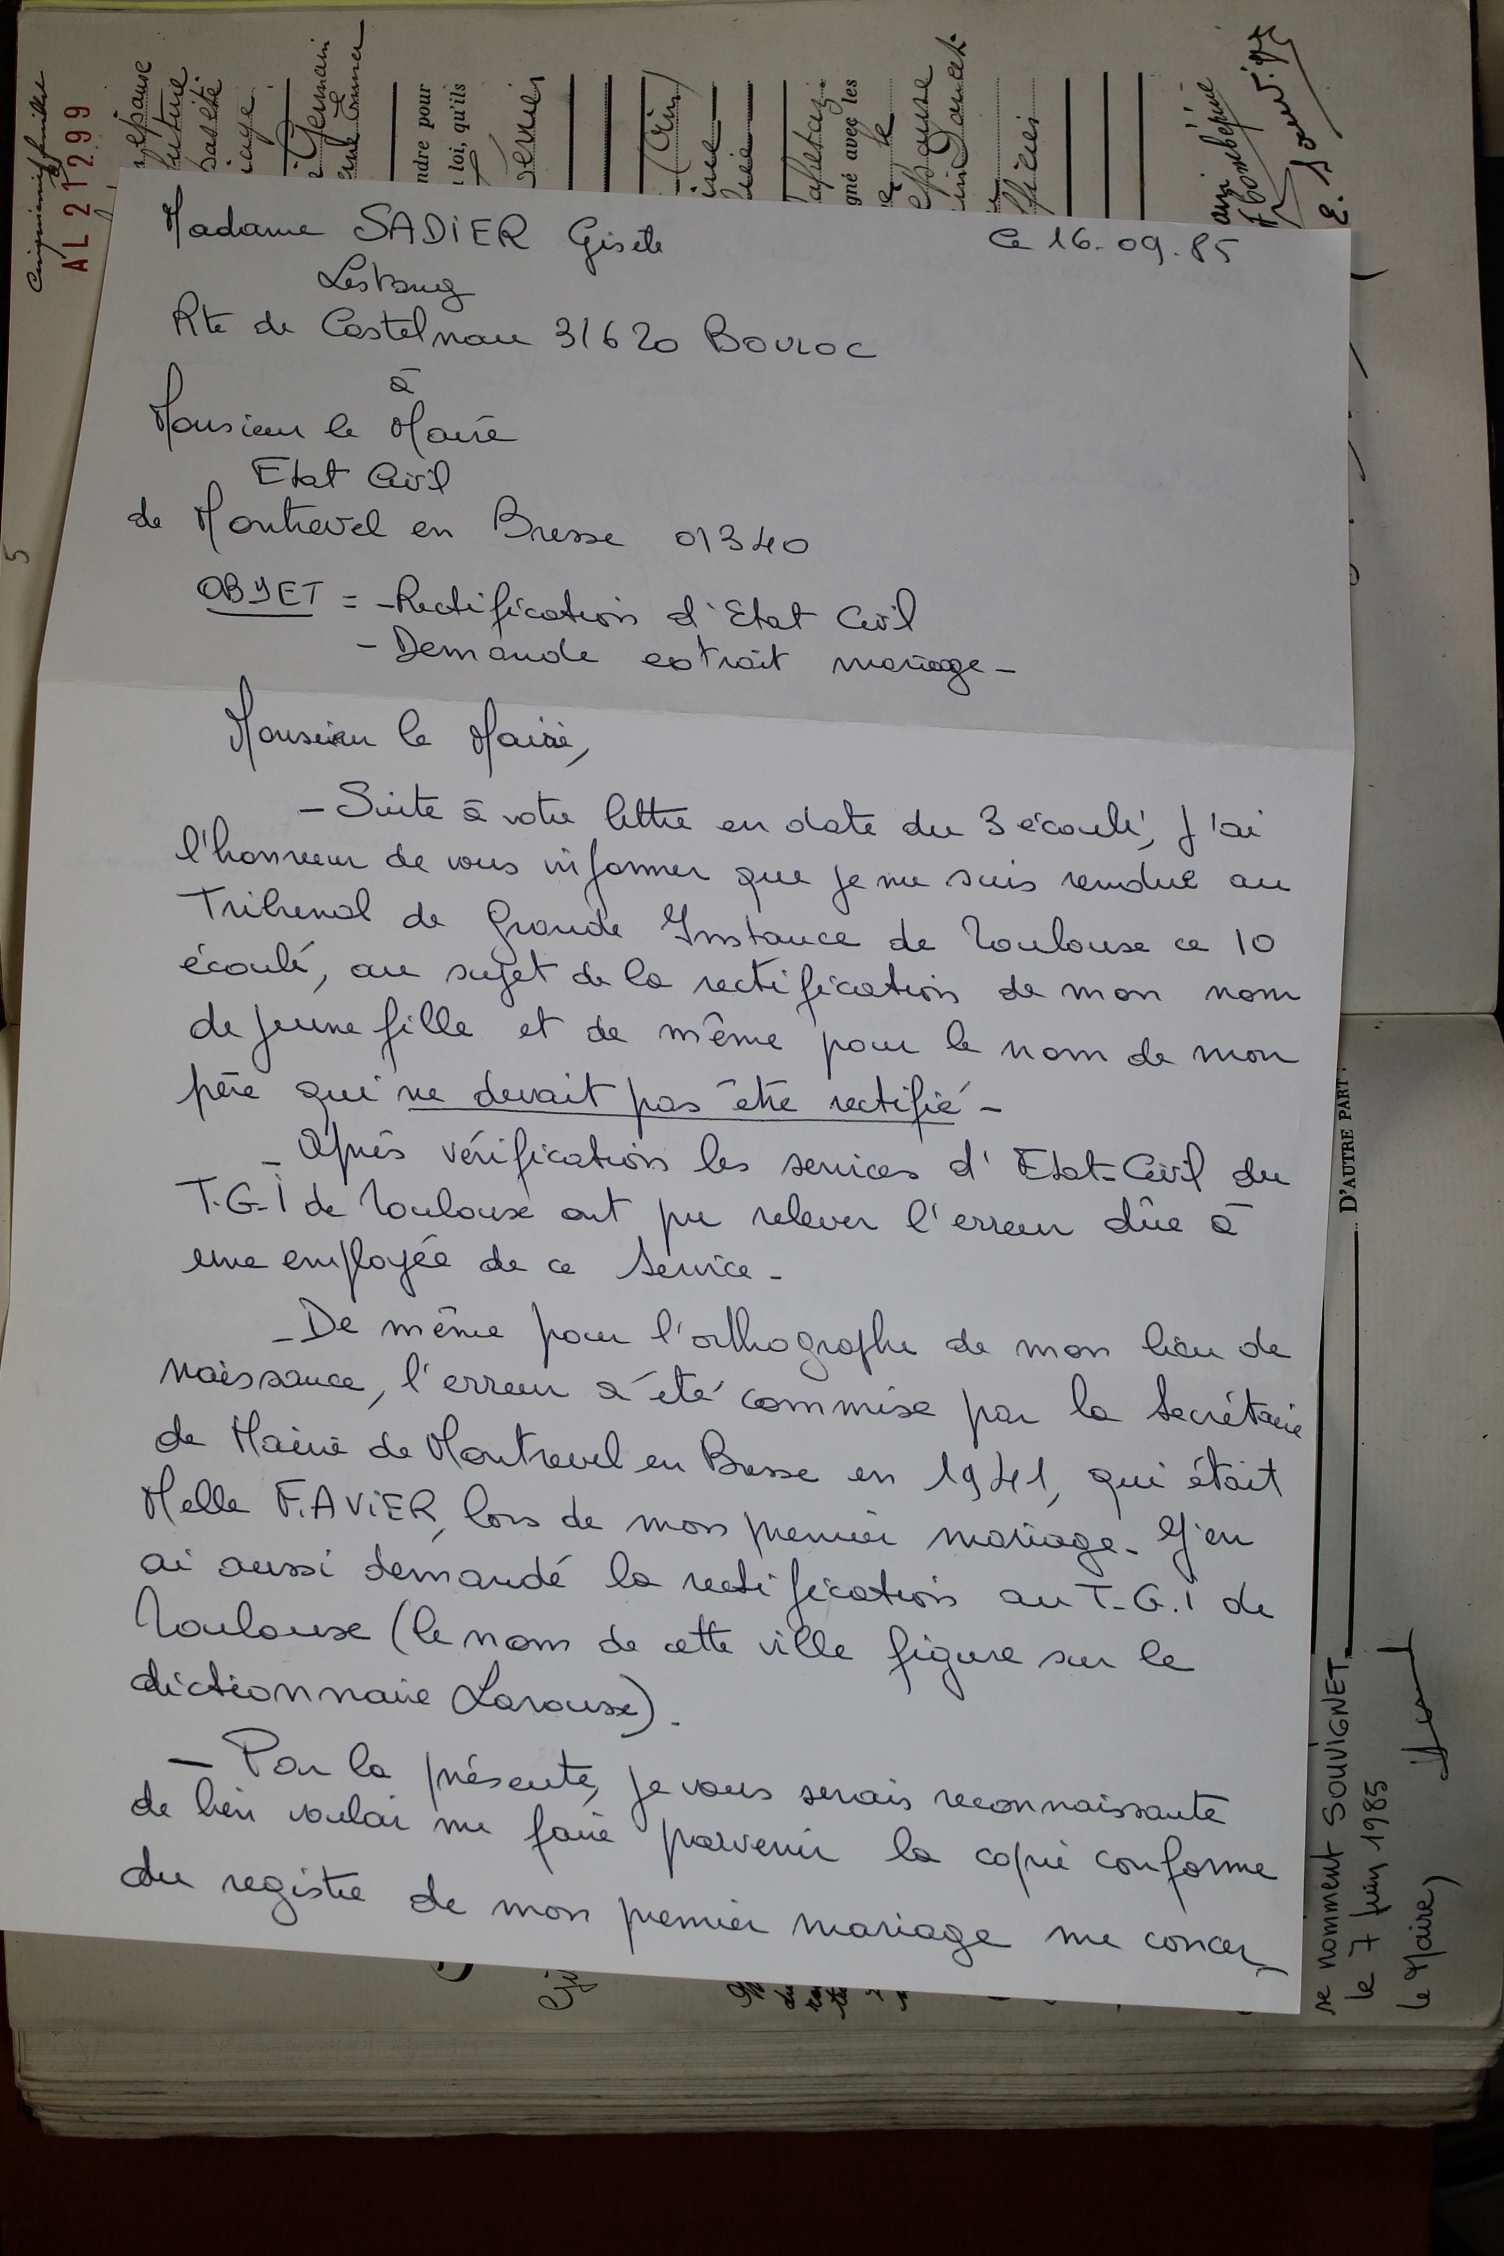 Madame SADIER Gisèle
Ce 16.09.85
Lestang
Rte de Castelnau 31620 BOULOC
à
Monsieur le Maire
Etat Civil
de Montrevel en Bresse 01340
OBJET = - Rectification d'Etat Civil
- Demande extrait mariage -
Monsieur le Maire,
- Suite à votre lettre en date du 3 écoulé, j'ai
l'honneur de vous informer que je me suis rendue au
Tribunal de Grande Instance de Toulouse ce 10
écoulé, au sujet de la rectification de mon nom
de jeune fille et de même pour le nom de mon
père qui ne devait pas être rectifié -
- Après vérification les services d'Etat-Civil du
T.G.I de Toulouse ont pu relever l'erreur dûe à
une employée de ce Service -
- De même pour l'orthographe de mon lieu de
naissance, l'erreur a été commise par la Secrétaire
de Mairie de Montrevel en Bresse en 1941, qui était
Melle F.AVIER, lors de mon premier mariage - J'en
ai aussi demandé la rectification au T.G.I de
Toulouse (le nom de cette ville figure sur le
dictionnaire Larousse).
- Par la présente, je vous serais reconnaissante
de bien vouloir me faire parvenir la copie conforme
du registre de mon premier mariage me concer
AL 21299
épouse
future
Germain
ndre pour
loi, qu'ils
gné avec les
épouse
5
D'AUTRE PART.
se nomment SOUVIGNET
le 7 juin 1985
le Maire,